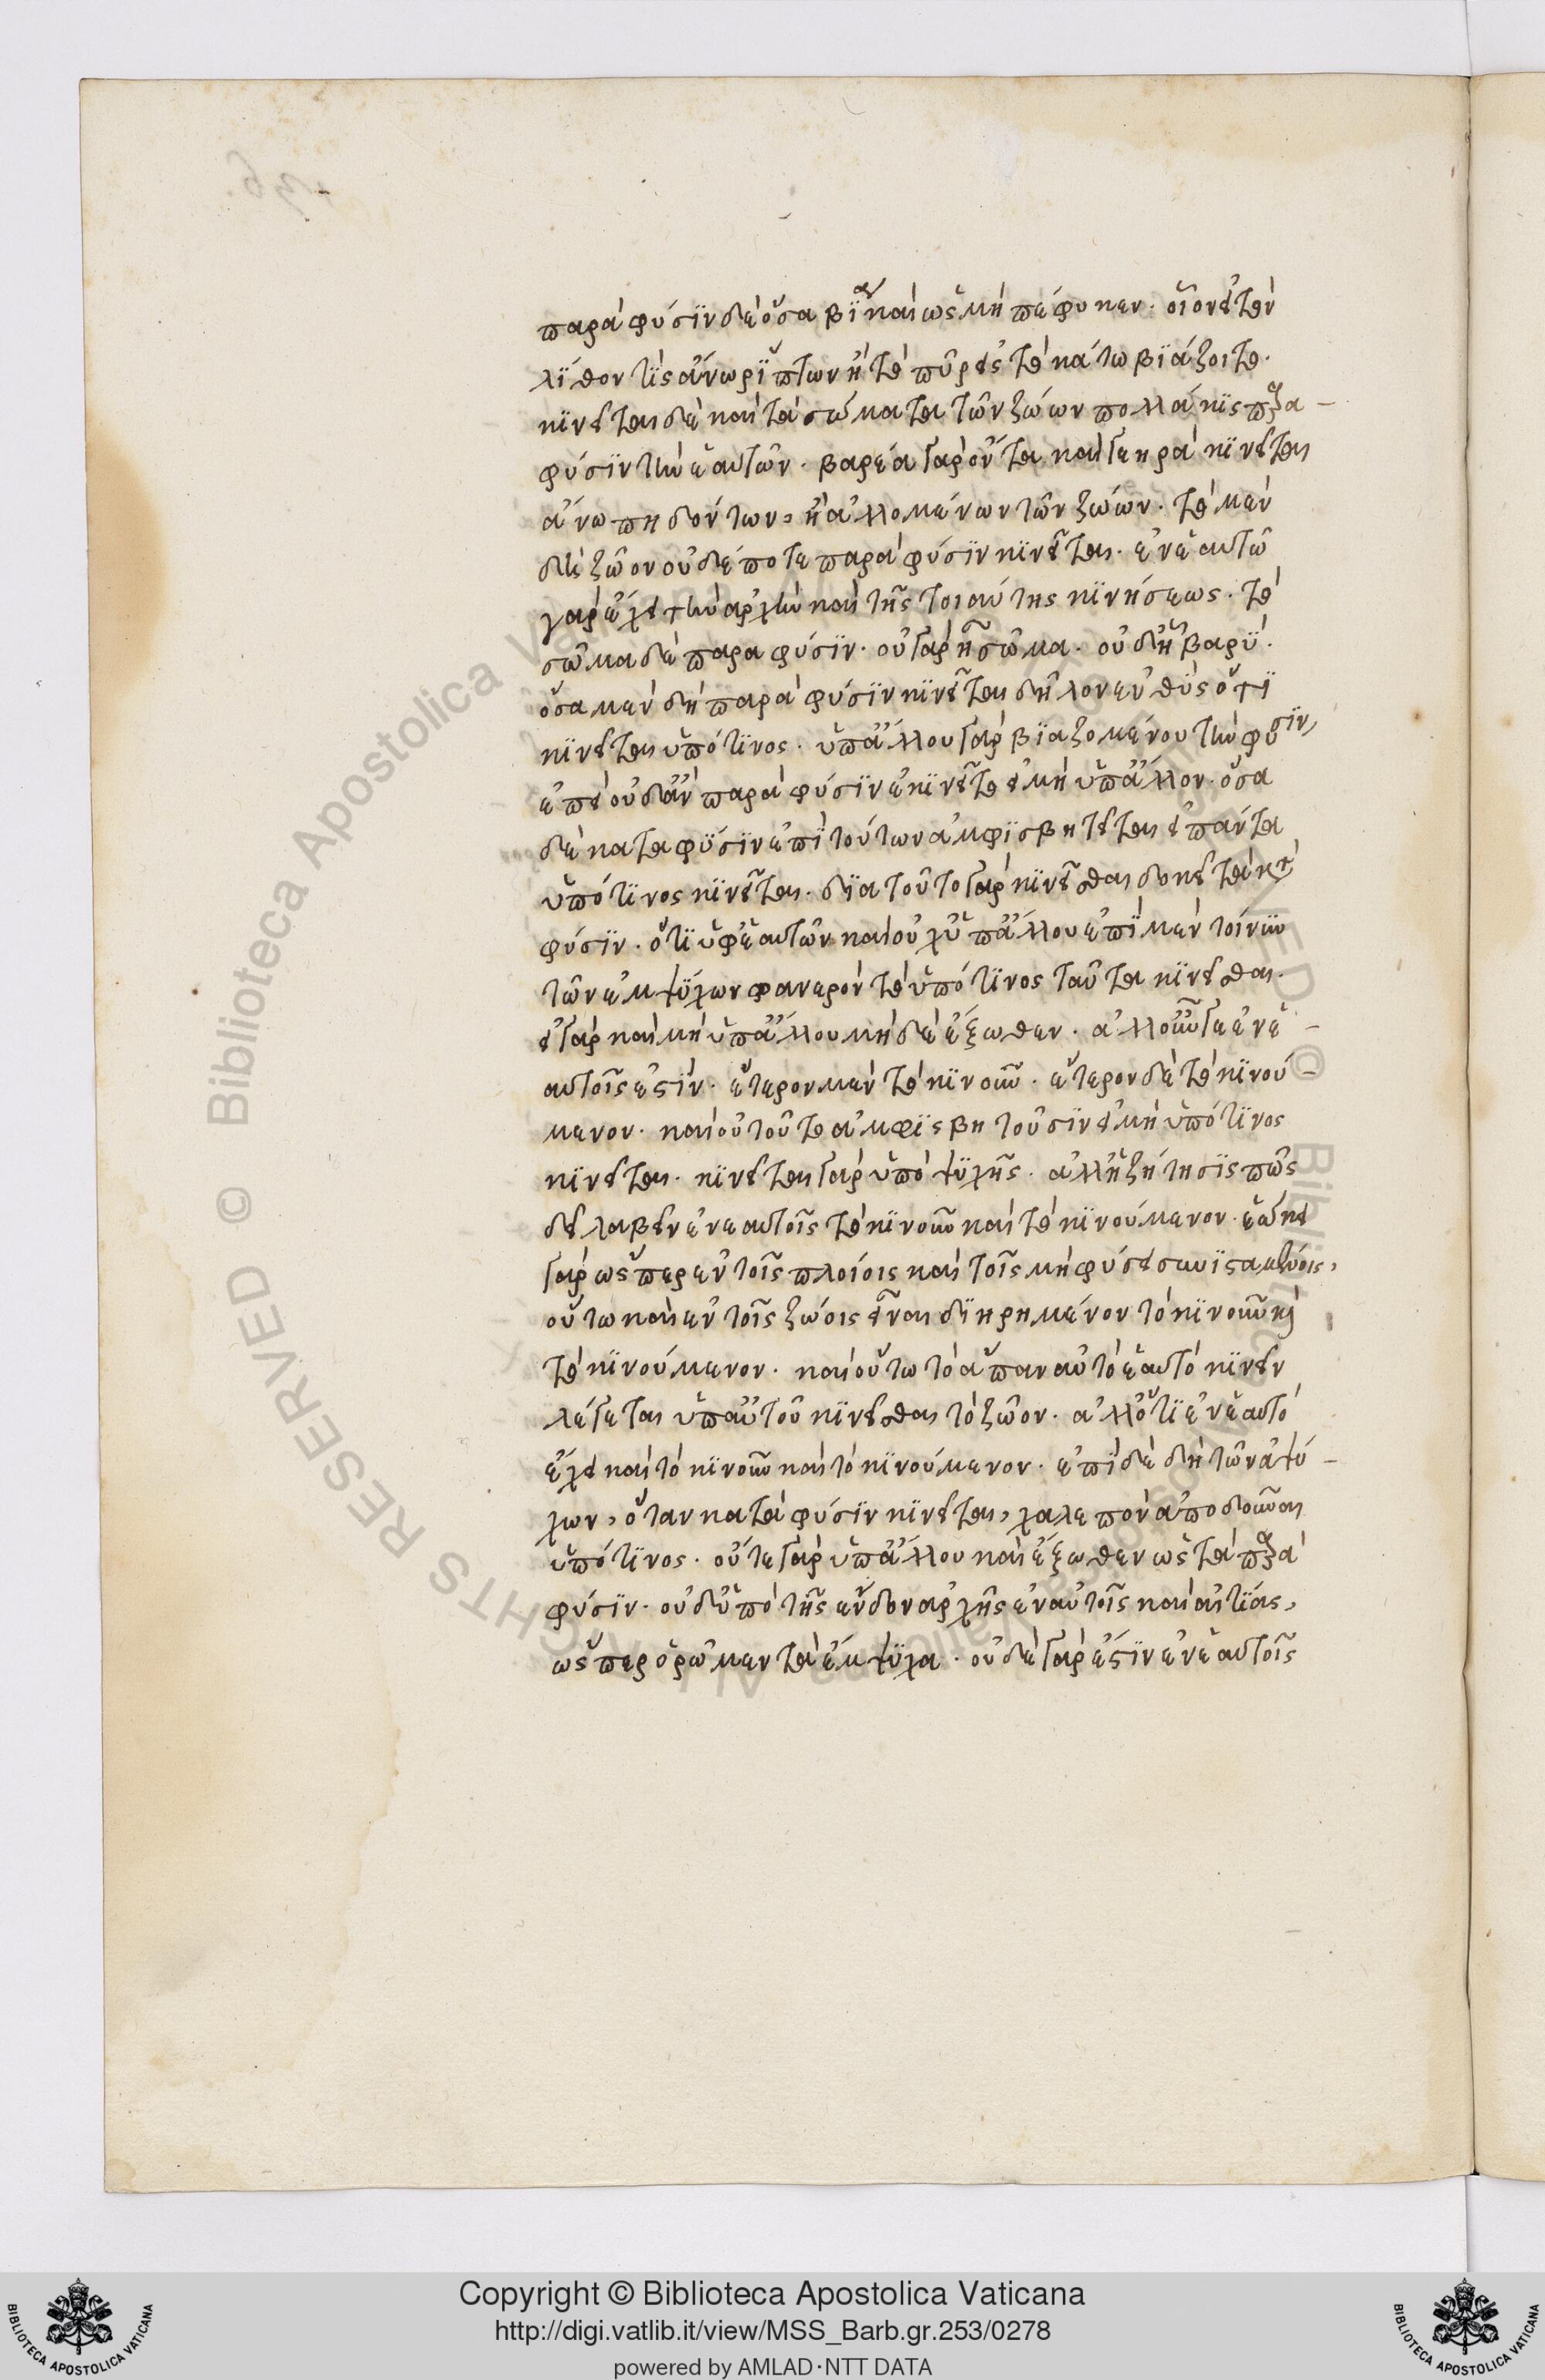 παρὰ φύσϊν δὲ ὅσα βίᾳ καὶ ὡς μὴ πέφυκεν· οἷον εἰ τὸν
λίθον τὶς ἄνω ρίπτων ἢ τὸ πῦρ εἰς τὸ κάτω βιάζοιτο·
κινεῖται δὲ καὶ τὰ σώματα τῶν ζώων πολλάκις παρα –
φύσιν τὴν ἑαυτῶν· βαρέα γὰρ ὄντα καὶ γεηρὰ κινεῖται
ἄνω πηδόντων, ἢ ἁλλομένων τῶν ζώων· τὸ μὲν
δὴ ζῶον οὐδέποτε παρὰ φύσιν κινεῖται· ἐν ἑαυτῶ
γὰρ ἔχει τὴν ἀρχὴν καὶ τῆς τοιαύτης κινήσεως· τὸ
σῶμα δὲ παρα φύσιν· οὐ γὰρ ἧ σῶμα· οὐδ' ἧ βαρύ·
ὅσα μὲν δὴ παρὰ φύσιν κινεῖται δῆλον εὐθὺς ὅτι
κινεῖται ὑπό τινος· ὑπ' ἄλλου γὰρ βιαζομένου τὴν φύσιν,
ἐπεὶ οὐδ' ἂν παρὰ φύσιν ἐκινεῖτο εἰ μὴ ὑπ' ἄλλον· ὅσα
δὲ κατα φύσιν ἐπὶ τούτων ἀμφισβητεῖται εἰ πάντα
ὑπό τινος κινεῖται· δια τοῦτο γὰρ κινεῖσθαι δοκεῖ τὰ κατὰ
φύσιν· ὅτι ὑφ' ἑαυτῶν καὶ οὐχ ὑπ' ἄλλου ἐπὶ μὲν τοίνυν
τῶν ἐμψύχων φανερὸν τὸ ὑπό τινος ταῦτα κινεῖσθαι·
εἰ γὰρ καὶ μὴ ὑπ' ἄλλου μὴδὲ ἔξωθεν· ἀλλ' οὖν γε ἐν ἑ –
αυτοῖς ἐστίν· ἕτερον μὲν τὸ κινοῦν· ἕτερον δὲ τὸ κινού –
μενον· καὶ οὐ τοῦτο ἀμφισβητοῦσιν εἰ μὴ ὑπό τινος
κινεῖται· κινεῖται γὰρ ὑπὸ ψυχῆς· ἀλλ' ἡ ζήτησις πῶς
δεῖ λαβεῖν ἐν ἑαυτοῖς τὸ κινοῦν καὶ τὸ κινούμενον· ἔοικε
γὰρ ὥσπερ ἐν τοῖς πλοίοις καὶ τοῖς μὴ φύσει συνισταμένοις,
οὕτω καὶ ἐν τοῖς ζώοις εἶναι διηρημένον τὸ κινοῦν καὶ
τὸ κινούμενον· καὶ οὕτω τὸ ἅπαν αὐτὸ ἑαυτὸ κινεῖν
λέγεται ὑπ' αὐτοῦ κινεῖσθαι τὸ ζῶον· ἀλλ' ὅτι ἐν ἑαυτὸ
ἔχει καὶ τὸ κινοῦν καὶ τὸ κινούμενον· ἐπὶ δὲ δὴ τῶν ἀψύ –
χων, ὅταν κατὰ φύσιν κινεῖται, χαλεπὸν ἀποδοῦναι
ὑπό τινος· οὔτε γὰρ ὑπ' ἄλλου καὶ ἔξωθεν ὡς τὰ παρὰ
φύσιν· οὐδ' ὑπὸ τῆς ἔνδον ἀρχῆς ἐν αὐτοῖς καὶ αἰτίας,
ὥσπερ ὁρῶμεν τὰ ἔμψυχα· οὐδὲ γὰρ ἐστὶν ἐν ἑαυτοῖς
Copyright © Biblioteca Apostolica Vaticana
http://digi.vatlib.it/view/MSS_Barb.gr.253/0278
powered by AMLAD·NTT DATA